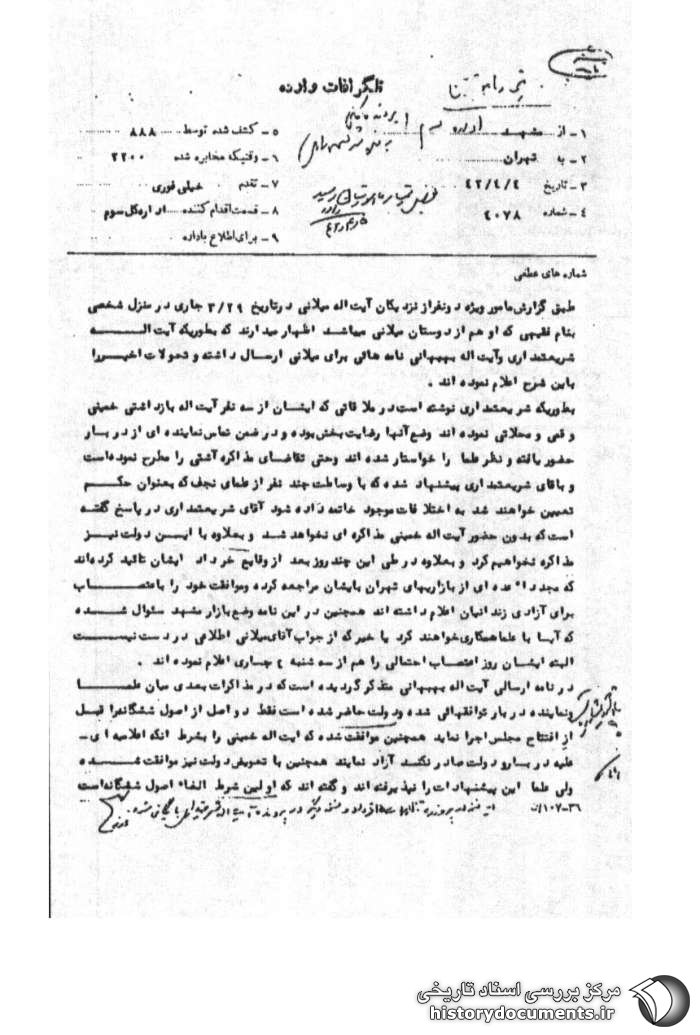 تلگرافات وارده
۱- از مشهد
۲- به تهران
۳- تاریخ ۴۲/۴/۴
۴- شماره ۴۰۷۸
۵- کشف شده توسط ۸۸۸
۶- وقتیکه مخابره شده ۲۲۰۰
۷- تقدم خیلی فوری
۸- قسمت اقدام کننده اداره کل سوم
۹- برای اطلاع باداره
شماره های عطفی
طبق گزارش مامور ویژه دونفراز نزدیکان آیت اله میلانی درتاریخ ۳/۲۹ جاری در منزل شخصی
بنام فقیهی که او هم از دوستان میلانی میباشد اظهار میدارند که بطوریکه آیت الــه
شریعتمداری وآیت اله بهبهانی نامه هائی برای میلانی ارسال داشته و تحولات اخیــررا
باین شرح اعلام نموده اند .
بطوریکه شریعتمداری نوشته است در ملاقاتی که ایشان از سه نفر آیت اله بازداشتی خمینی
وقمی و محلاتی نموده اند وضع آنها رضایت بخش بوده و در ضمن تماس نماینده ای از دربار
حضور یافته و نظر علما را خواستار شده اند وحتی تقاضای مذاکره آشتی را مطرح نموده است
و باقای شریعتمداری پیشنهاد شده که با وساطت چند نفر از علمای نجف که بعنوان حکــم
تعیین خواهند شد به اختلافات موجود خاتمه داده شود آقای شریعتمداری در پاسخ گفتــه
است که بدون حضور آیت اله خمینی مذاکره ای نخواهد شد و بعلاوه با ایــن دولت نیــز
مذاکره نخواهیم کرد و بعلاوه در طی این چند روز بعد از وقایع خرداد ایشان تائید کرده‌اند
که مجددا عده ای از بازاریهای تهران بایشان مراجعه کرده وموافقت خود را باعتصــاب
برای آزادی زندانیان اعلام داشته اند همچنین در این نامه وضع بازار مشهد سئوال شــده
که آیـا با علما همکاری خواهند کرد یا خیر که از جواب آقای میلانی اطلاعی در دست نیســت
البته ایشـان روز اعتصاب احتمالی را هم از سه شنبه ۴ جـاری اعلام نموده اند .
در نامه ارسالی آیت اله بهبهانی متذکر گردیده است که در مذاکرات بعدی میان علمــا
ونماینده دربار توافقهائی شده ودولت حاضر شده است فقط دو اصل از اصول ششگانه‌را قبـل
از افتتاح مجلس اجرا نماید همچنین موافقت شده که آیت اله خمینی را بشرط آنکه اعلامیه ای-
علیه دربار و دولت صادر نکند آزاد نمایند همچنین با تعویض دولت نیز موافقت شــده
ولی علما این پیشنهادات را نپذیرفته اند و گفته اند که اولین شرط الغاء اصول ششگانه‌است
۳۶-۱۰۷/ان
مرکز بررسی اسناد تاریخی
historydocuments.ir